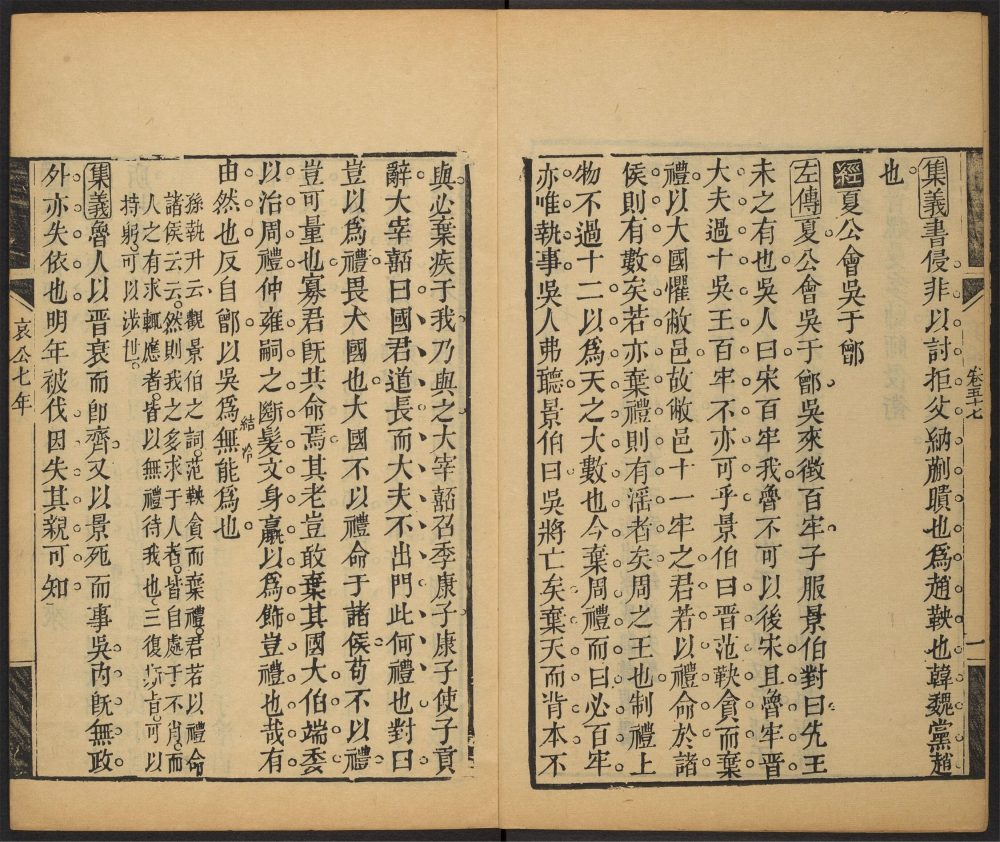 集義書侵非以討拒父納蒯聵也爲趙鞅也韓魏黨趙
也
經夏公會吳于鄫
左傳夏公會吳于鄫吳來徵百牢子服景伯對曰先王
未之有也吳人曰宋百牢我魯不可以後宋且魯牢晋
大夫過十吳王百牢不亦可乎景伯曰晋范鞅貪而棄
禮以大國懼敝邑故敝邑十一牢之君若以禮命於諸
侯則有數矣若亦棄禮則有淫者矣周之王也制禮上
物不過十二以爲天之大數也今棄周禮而曰必百牢
亦唯執事吳人弗聽景伯曰吳將亡矣棄天而背本不
卷五十七
一
與必棄疾于我乃與之大宰嚭召季康子康子使子貢
辭大宰嚭曰國君道長而大夫不出門此何禮也對曰
豈以爲禮畏大國也大國不以禮命于諸侯苟不以禮
豈可量也寡君旣共命焉其老豈敢棄其國大伯端委
以治周禮仲雍嗣之斷髪文身臝以爲飾豈禮也哉有
由然也反自鄫以吳爲無能爲也
結冷
孫執升云觀景伯之詞范鞅貪而棄禮君若以禮命
諸侯云云然則我之多求于人者皆自處于不肖而
人之有求輒應者皆以無禮待我也三復斯旨可以
持躬可以涉世
集義魯人以晋衰而卽齊又以景死而事吳内旣無政
外亦失依也明年被伐因失其親可知
哀公七年